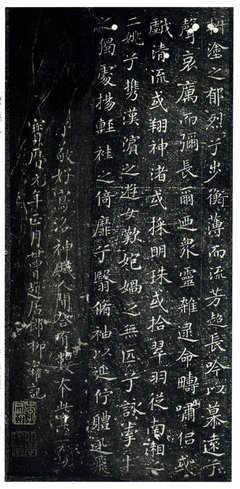 塗之郁烈兮步衡薄而流芳超長吟以慕遠兮
聲哀厲而彌長爾迺眾靈雜遝命疇嘯侶或
戲清流或翔神渚或採明珠或拾翠羽從南湘之
二姚兮攜漢濱之遊女歎妃媧之無匹兮詠牽牛
之獨處揚輕袿之倚靡兮翳脩袖以延佇體迅飛
子敬好寫洛神賦人間合有數本此其一焉
寶曆元年正月廿四日起居郎柳公權記